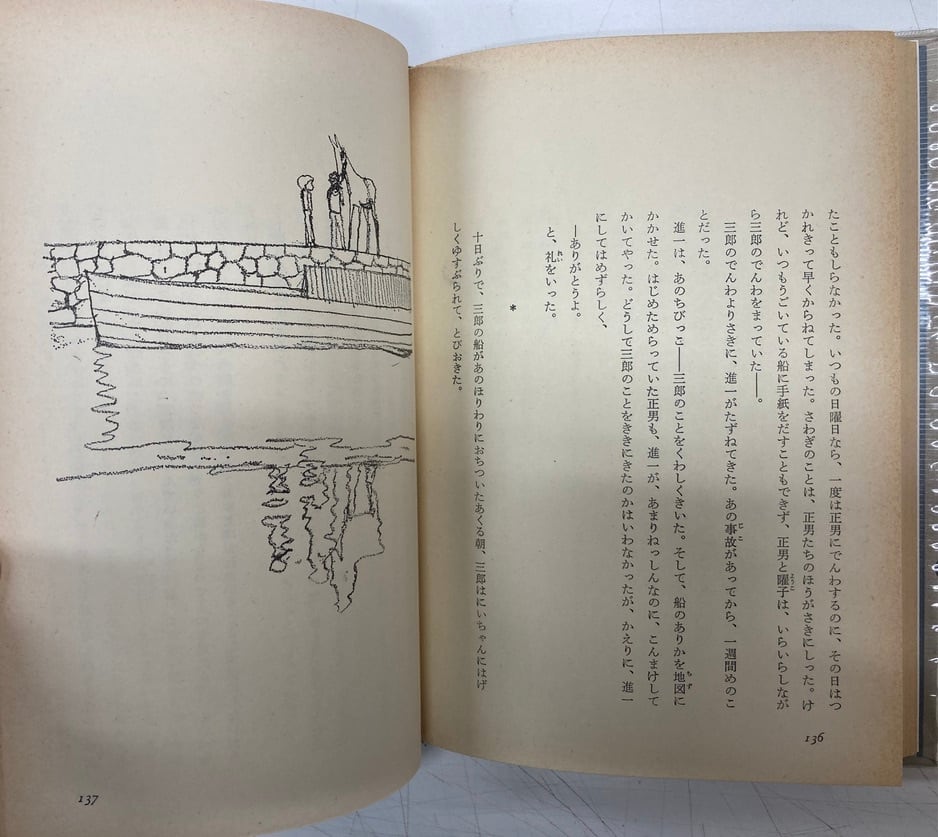 たこともしらなかった。いつもの日曜日なら、一度は正男にでんわするのに、その日はつ
かれきって早くからねてしまった。さわぎのことは、正男たちのほうがさきにしった。け
れど、いつもうごいている船に手紙をだすこともできず、正男と曜子は、いらいらしなが
ら三郎のでんわをまっていた――。
三郎のでんわよりさきに、進一がたずねてきた。あの事故があってから、一週間めのこ
とだった。
進一は、あのちびっこ――三郎のことをくわしくきいた。そして、船のありかを地図に
かかせた。はじめためらっていた正男も、進一が、あまりねっしんなのに、こんまけして
かいてやった。どうして三郎のことをききにきたのかはいわなかったが、かえりに、進一
にしてはめずらしく、
―ありがとうよ。
と、礼をいった。
*
十日ぶりで、三郎の船があのほりわりにおちついたあくる朝、三郎はにいちゃんにはげ
しくゆすぶられて、とびおきた。
136
137